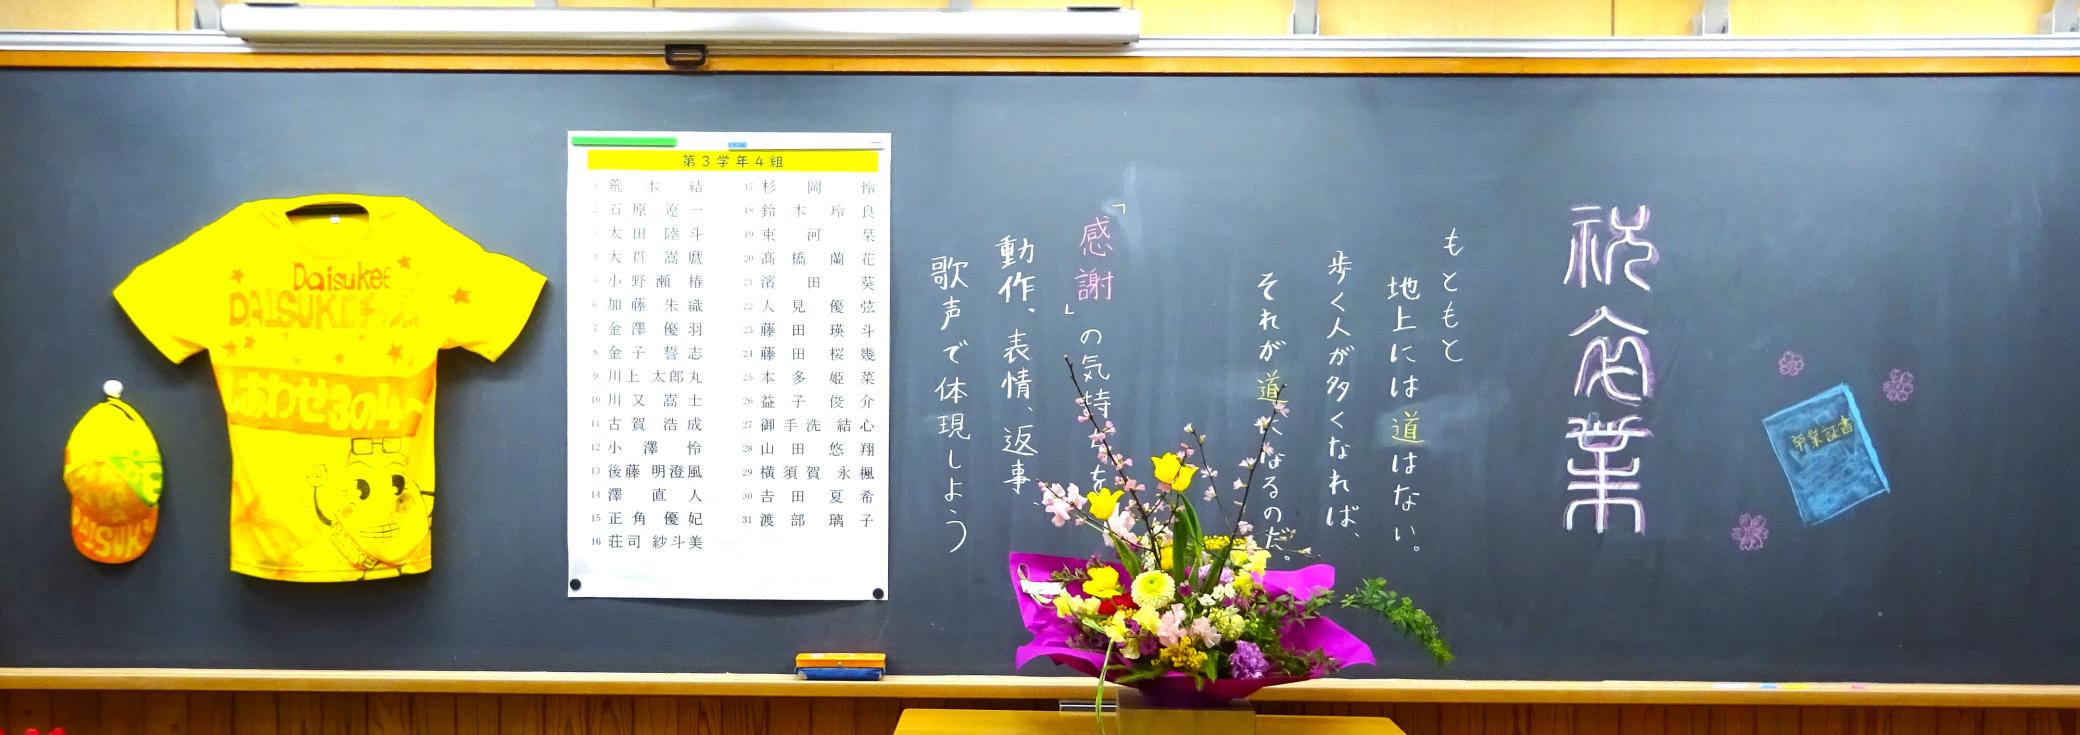 Daisukee
DAISUKE
しあわせ3の4へ
DAISUKE
第3学年4組
1 荒木 結
2 石原 遼一
3 太田 陸斗
4 大貫 嵩麿
5 小野瀬 椿
6 加藤 朱織
7 金澤 優羽
8 金子 誓志
9 川上 太郎丸
10 川又 嵩士
11 古賀 浩成
12 小澤 怜
13 後藤 明澄風
14 澤 直人
15 正角 優妃
16 荘司 紗斗美
17 杉岡 怜
18 鈴木 玲良
19 東河 栞
20 髙橋 蘭花
21 濱田 葵
22 人見 優弦
23 藤田 瑛斗
24 藤田 桜幾
25 本多 姫菜
26 益子 俊介
27 御手洗 結心
28 山田 悠翔
29 横須賀 永楓
30 吉田 夏希
31 渡部 璃子
祝卒業
卒業証書
もともと
地上には道はない。
歩く人が多くなれば、
それが道になるのだ。
「感謝」の気持ちを
動作、表情、返事、
歌声で体現しよう